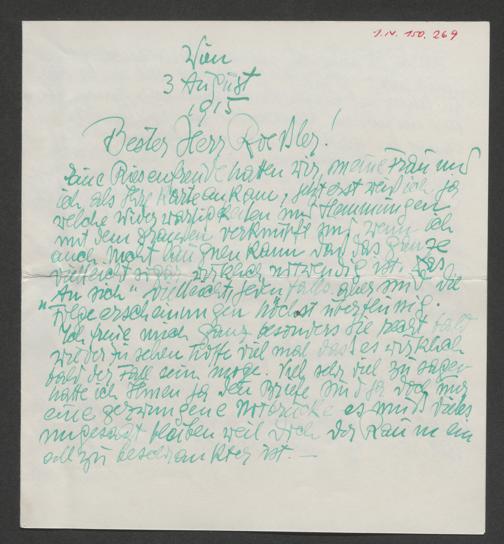 I.N. 150.269
Wien
3 August
1915
Bester Herr Roeßler!
Eine Riesenfreude hatten wir, meine Frau und
ich, als Ihre Karte ankam, jetzt erst weiß ich ja
welche Widerwärtigkeiten und Hemmungen
mit dem verknüpft sind, wenn ich
auch nicht leugnen kann daß das ganze
vielleicht sogar wirklich notwendig ist. Das
"An sich" vielleicht jeden falls, aber sind die
Folgeerscheinungen höchst überflüssig.
Ich freue mich ganz besonders Sie bald
wieder zu sehen hoffe viel mal dass es wirklich
bald der Fall sein möge. Viel sehr viel zu sagen
hatte ich Ihnen ja den Briefe sind ja doch nur
eine gezwungene es muß vieles
ungesagt bleiben weil doch der Raum ein
zu beschränkter ist. —